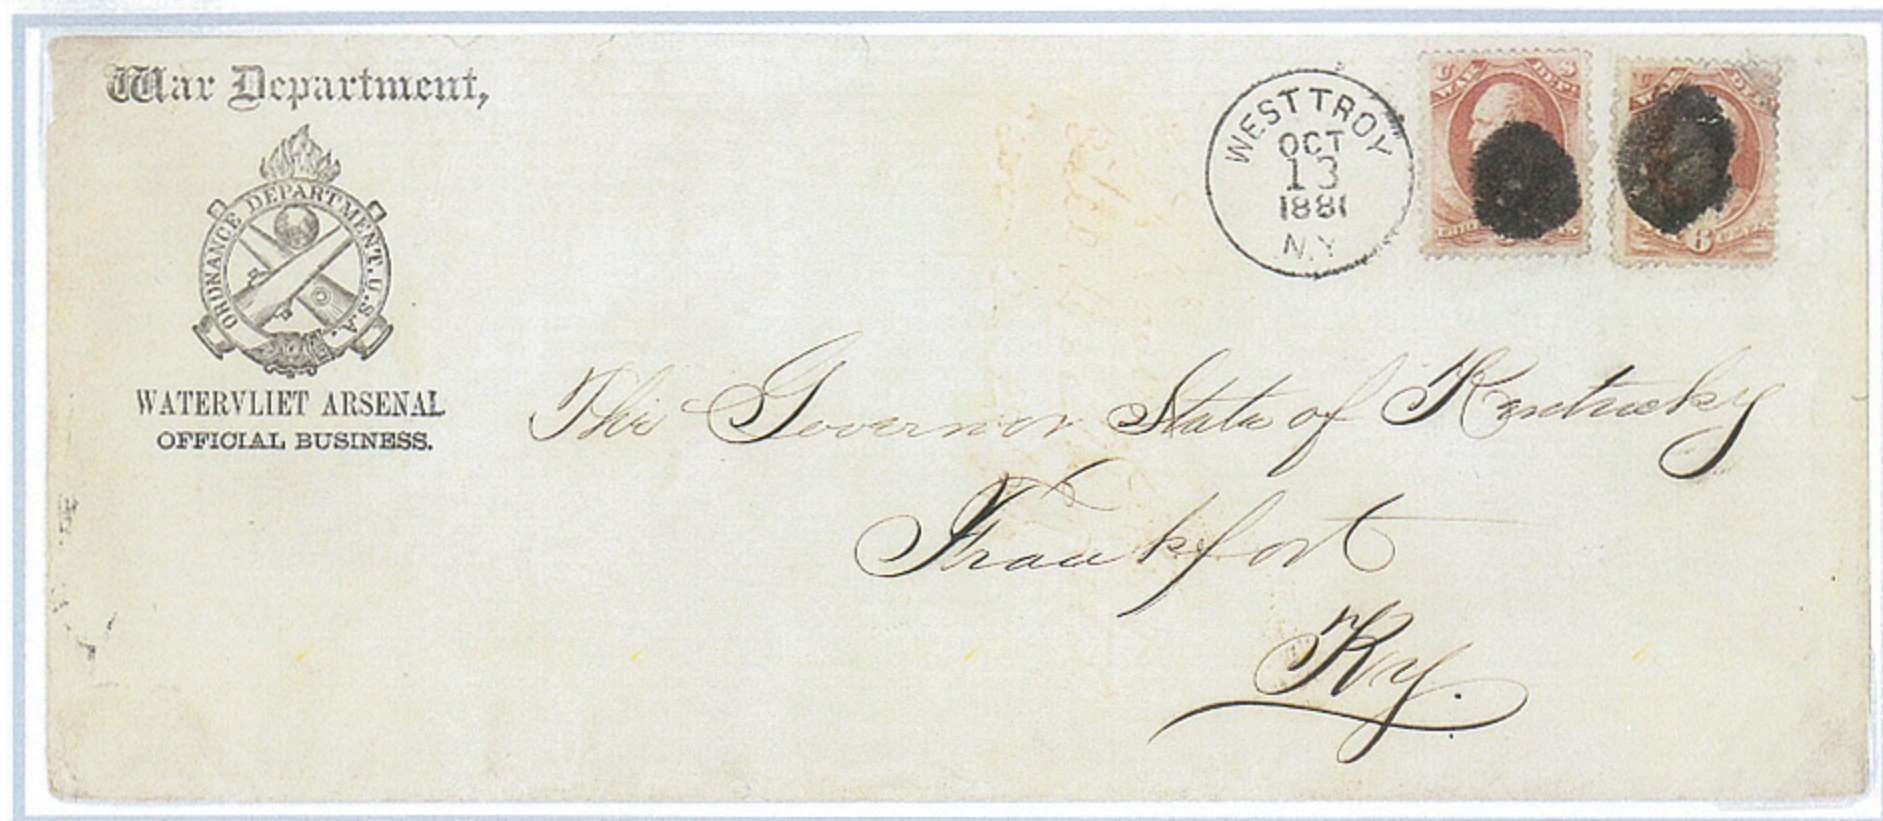 War Department,
ORDNANCE DEPARTMENT. U.S.A.
WATERVLIET ARSENAL
OFFICIAL BUSINESS.
WEST TROY
OCT
13
1881
N.Y.
U S
WAR DEPT.
6
The Governor State of Kentucky
Frankfort
Ky.